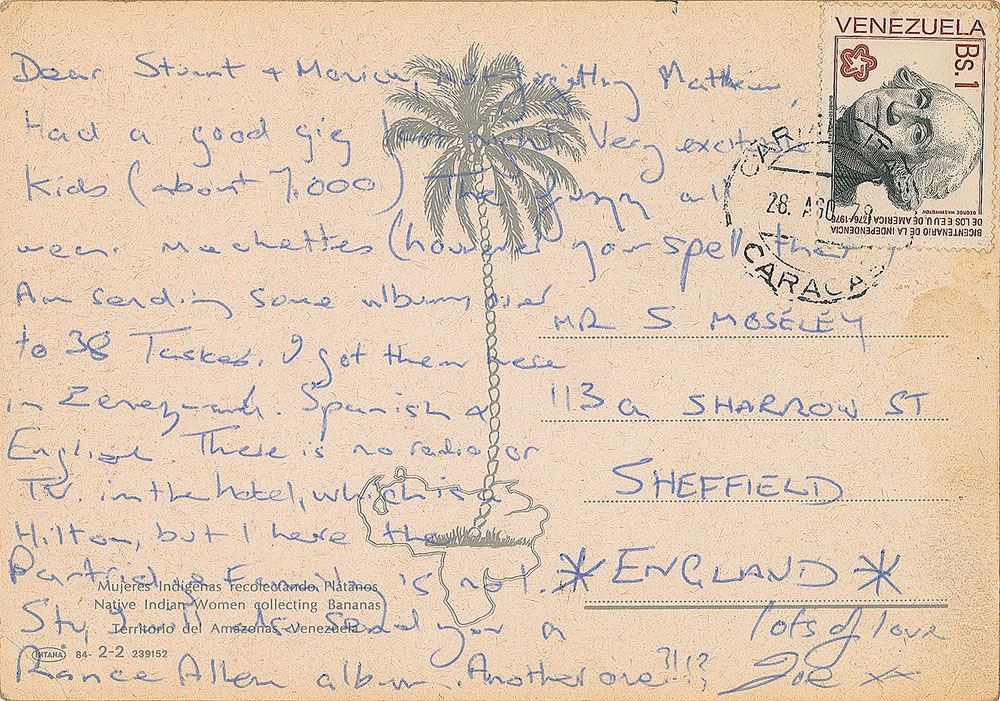 Dear Stuart + Monica, not forgetting Matthew,
Had a good gig last night Very excitable
Kids (about 7,000) The fuzzy all
wear Machettes (however you spell them)
Am sending some albums over
to 38 Tasker. I got them here
in Spanish &
English. There is no radio or
TV. in the hotel, which is a
Hilton, but I here the
Partridge Family is no 1.
Stu, I will also send you a
Rance Allen album. Another one ?!!?
lots of love
Joe x
MR S MOSELEY
113a SHARROW ST
SHEFFIELD
* ENGLAND *
VENEZUELA
Bs.1
BICENTENARIO DE LA INDEPENDENCIA
DE LOS E.E.U.U. DE AMERICA 1776-1976
GEORGE WASHINGTON
28. AGO
CARACAS
Mujeres Indígenas recolectando Plátanos
Native Indian Women collecting Bananas
Territorio del Amazonas-Venezuela
INTANA 84- 2-2 239152